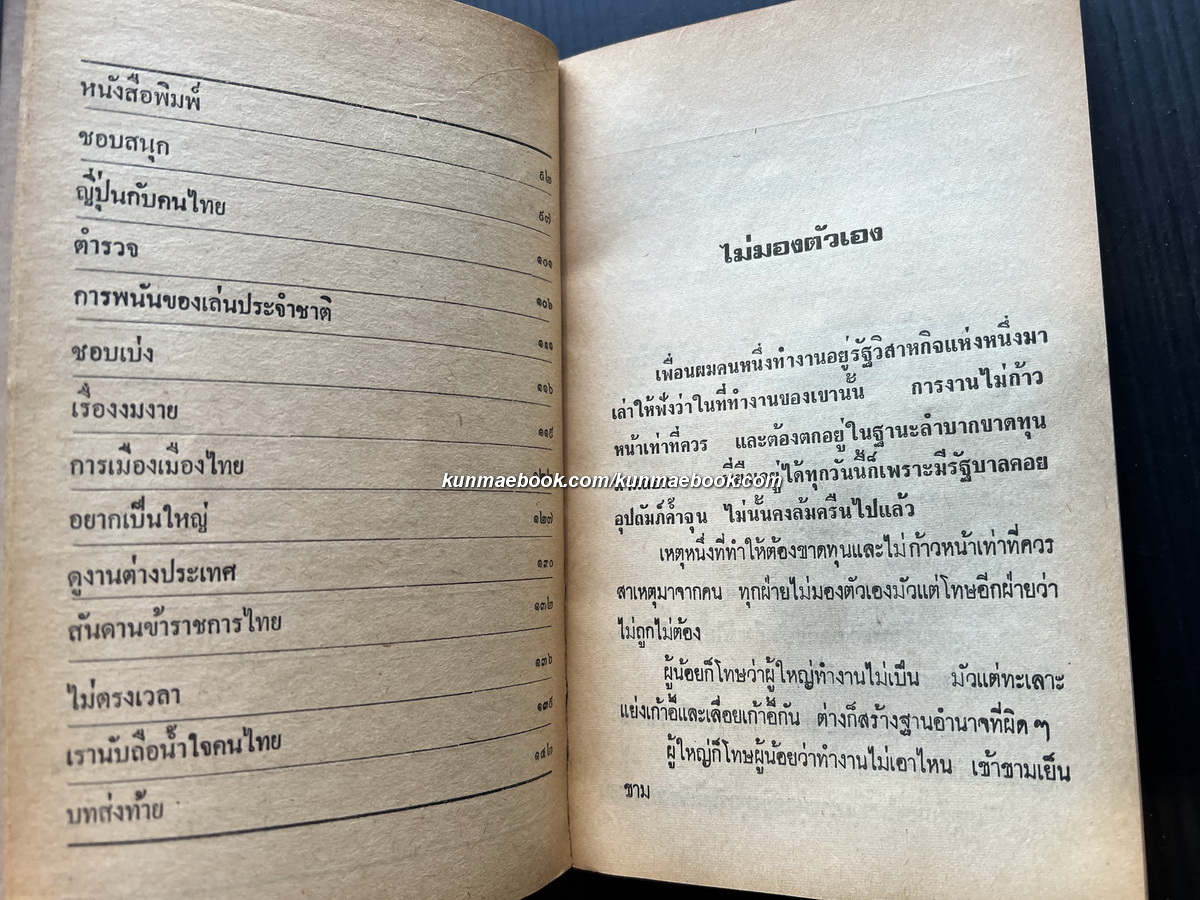 หนังสือพิมพ์
ชอบสนุก ๙๒
ญี่ปุ่นกับคนไทย ๙๗
ตำรวจ ๑๐๑
การพนันของเล่นประจำชาติ ๑๐๖
ชอบเบ่ง ๑๑๑
เรื่องงมงาย ๑๑๖
การเมืองเมืองไทย ๑๑๙
อยากเป็นใหญ่
ดูงานต่างประเทศ ๑๒๗
สันดานข้าราชการไทย ๑๓๐
๑๓๒
ไม่ตรงเวลา ๑๓๖
เรานับถือน้ำใจคนไทย ๑๓๙
บทส่งท้าย ๑๔๒
ไม่มองตัวเอง
เพื่อนผมคนหนึ่งทำงานอยู่รัฐวิสาหกิจแห่งหนึ่งมา
เล่าให้ฟังว่าในที่ทำงานของเขานั้น การงานไม่ก้าว
หน้าเท่าที่ควร และต้องตกอยู่ในฐานะลำบากขาดทุน
ที่ยืนอยู่ได้ทุกวันนี้ก็เพราะมีรัฐบาลคอย
อุปถัมภ์ค้ำจุน ไม่นั้นคงล้มครืนไปแล้ว
เหตุหนึ่งที่ทำให้ต้องขาดทุนและไม่ก้าวหน้าเท่าที่ควร
สาเหตุมาจากคน ทุกฝ่ายไม่มองตัวเองมัวแต่โทษอีกฝ่ายว่า
ไม่ถูกไม่ต้อง
ผู้น้อยก็โทษว่าผู้ใหญ่ทำงานไม่เป็น มัวแต่ทะเลาะ
แย่งเก้าอี้และเลื่อยเก้าอี้กัน ต่างก็สร้างฐานอำนาจที่ผิด ๆ
ผู้ใหญ่ก็โทษผู้น้อยว่าทำงานไม่เอาไหน เช้าชามเย็น
ชาม
kunmaebook.com/kunmaebook.com